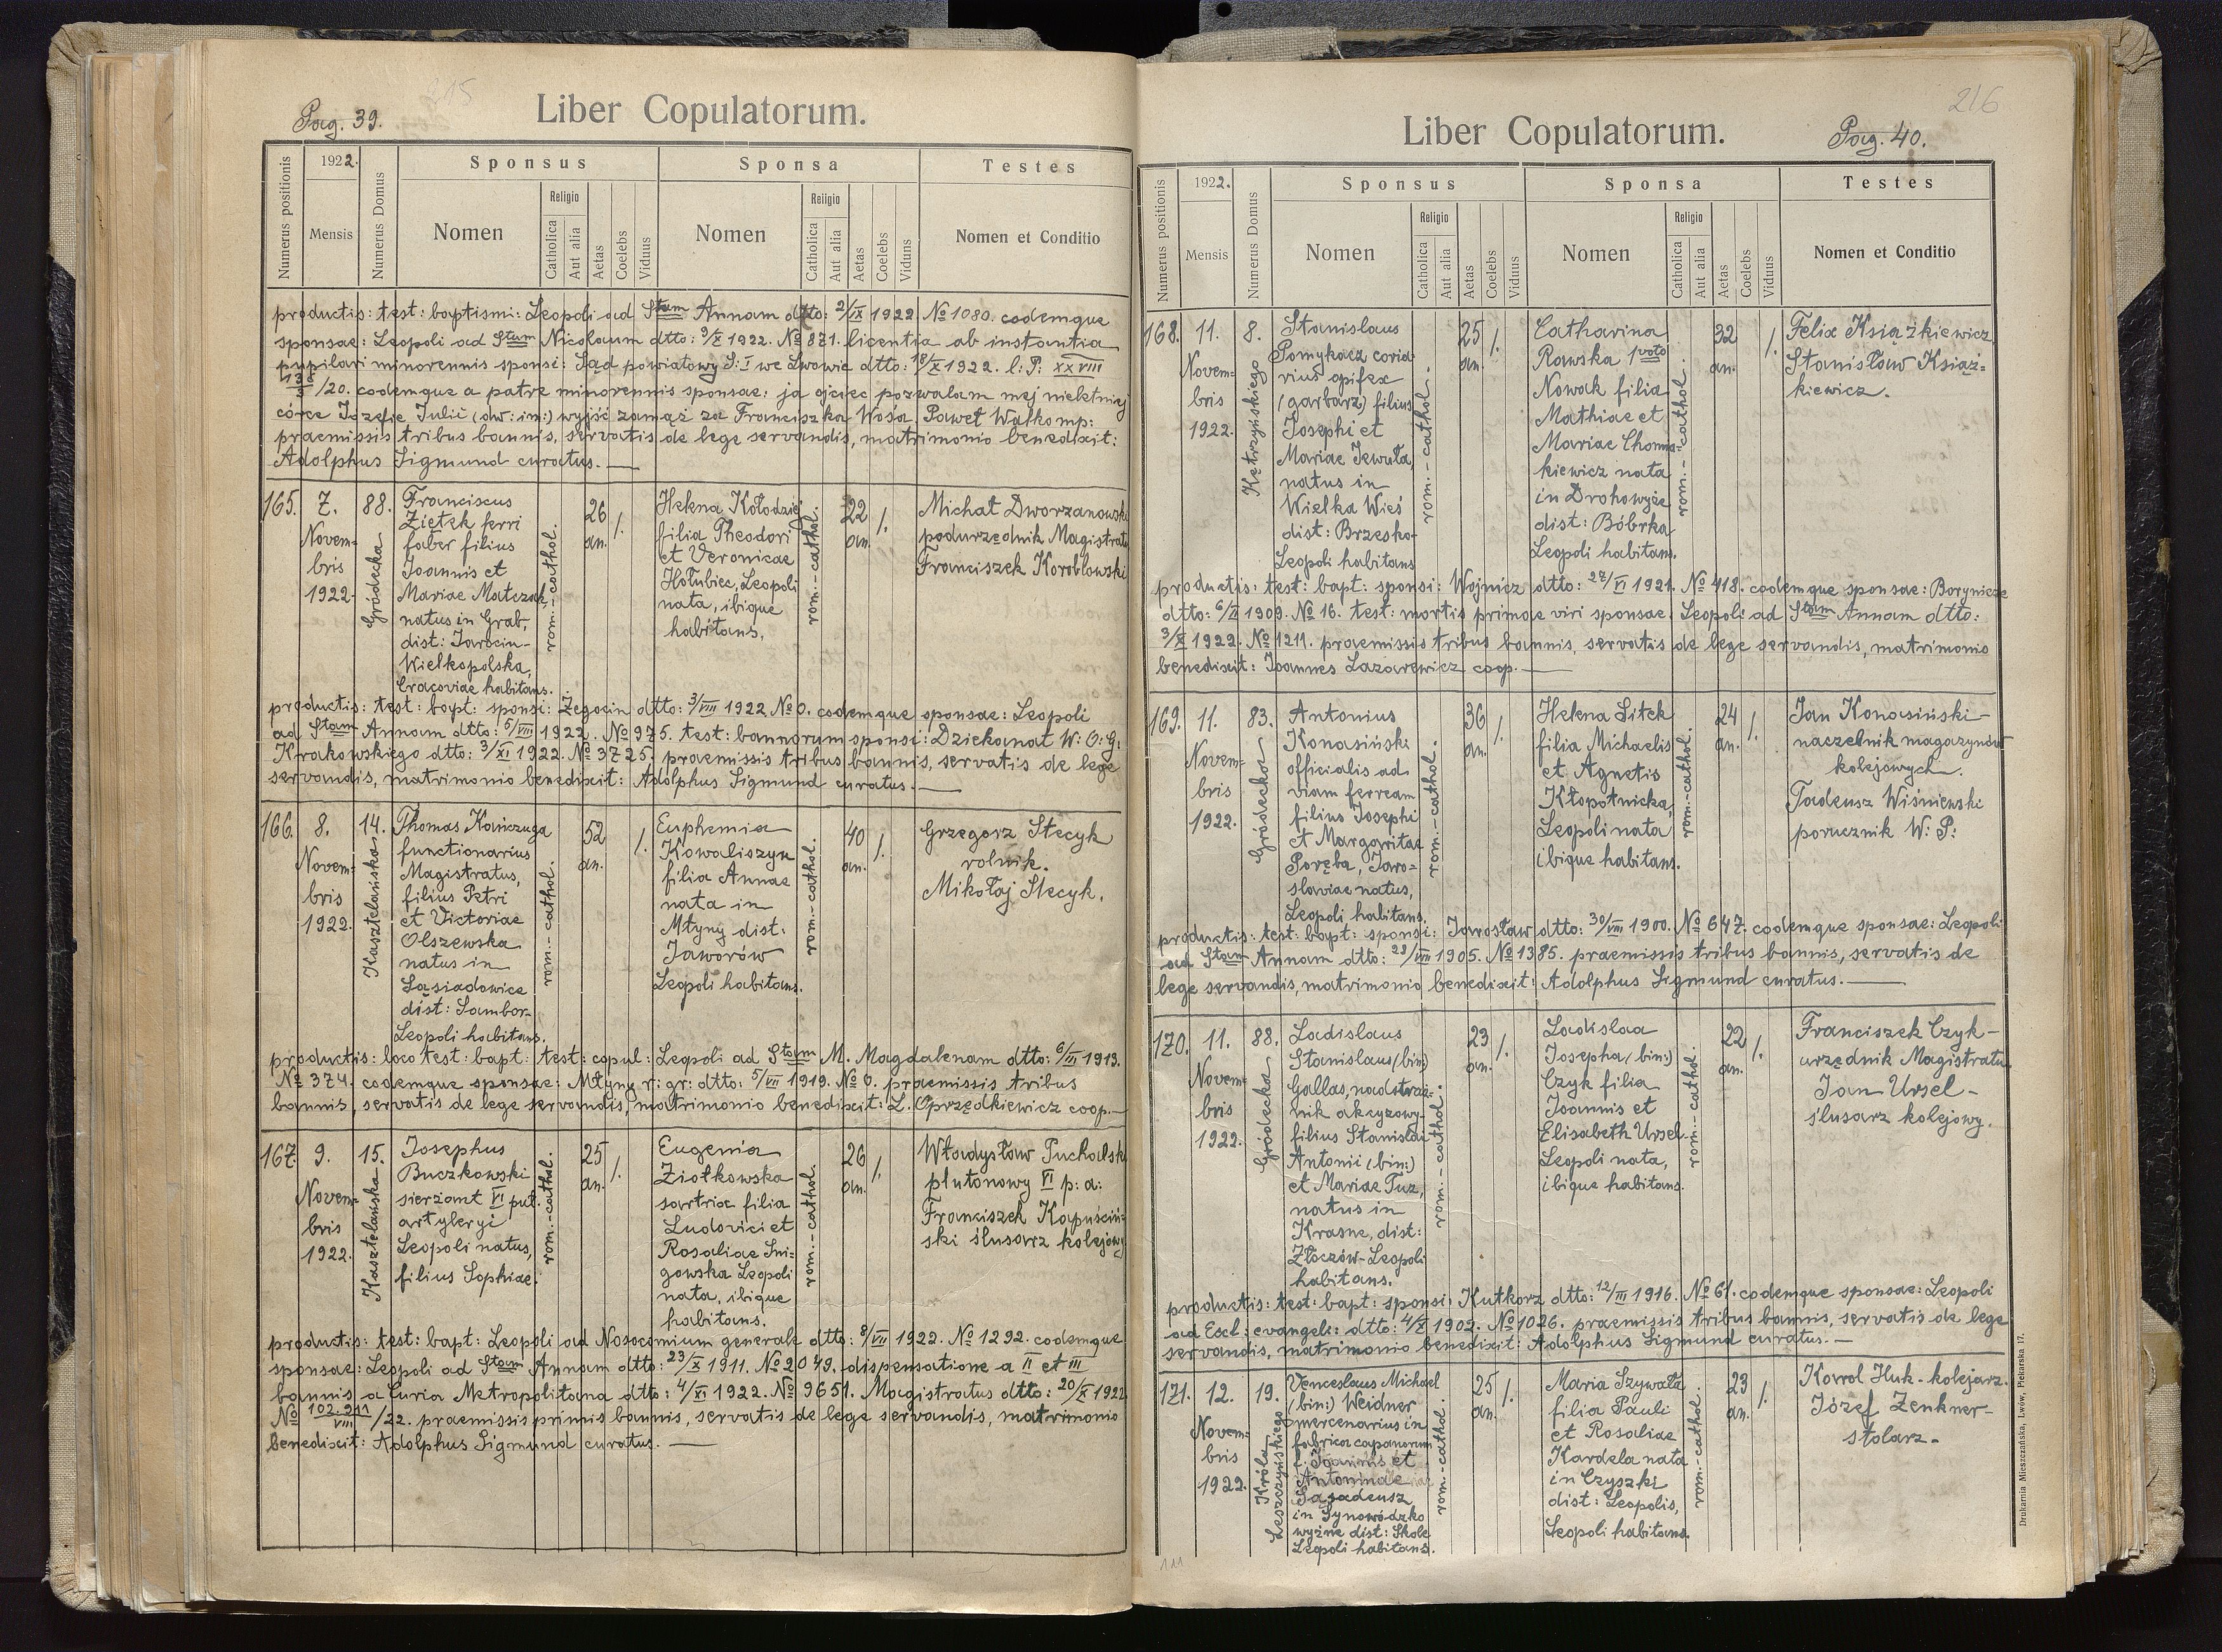 Pag. 39.
Liber Copulatorum.
Numerus positionis
1922.
Mensis
Numerus Domus
Sponsus
Nomen
Religio
Catholica
Aut alia
Aetas
Coelebs
Viduus
Sponsa
Nomen
Religio
Catholica
Aut alia
Aetas
Coelebs
Viduns
Testes
Nomen et Conditio
productis: test: baptismi: Leopoli ad Stam Annam dtto: 2/IX 1922. № 1080. eodemque
sponsae: Leopoli ad Stam Nicolaum dtto: 9/X 1922. № 871. licentia ab instantia
pupilari minorennis sponsi: Sąd powiatowy S: I we Lwowie dtto: 18/X 1922. l: P: XXVIII
138/3 /20. eodemque a patre minorennis sponsae: ja ojciec pozwalam mej nieletniej
córce Józefie Julii (dw: im:) wyjść zamąż za Franciszka Wosia Paweł Walk mp:
praemissis tribus bannis, servatis de lege servandis, matrimonio benedixit:
Adolphus Sigmund curatus.
165.
7.
Novem-
bris
1922.
88.
Gródecka
Franciscus
Ziętek ferri
faber filius
Joannis et
Mariae Matczak
natus in Grab,
dist: Jarocin-
Wielkopolska,
Cracoviae habitans.
rom.-cathol.
26
an.
/.
Helena Kołodziej
filia Theodori
et Veronicae
Hołubiec, Leopoli
nata, ibique
habitans.
rom.-cathol.
22
an.
/.
Michał Dworzanowski
podurzędnik Magistratu
Franciszek Koroblowski
productis: test: bapt: sponsi: Żegocin dtto: 3/VIII 1922 № 0. eodemque sponsae: Leopoli
ad Stam Annam dtto: 5/VIII 1922. № 975. test: bannorum sponsi: Dziekanat W: O: G:
Krakowskiego dtto: 3/XI 1922. № 3725. praemissis tribus bannis, servatis de lege
servandis, matrimonio benedixit: Adolphus Sigmund curatus.
166.
8.
Novem-
bris
1922.
14.
Kasztelańska
Thomas Kańczuga
functionarius
Magistratus,
filius Petri
et Victoriae
Olszewska
natus in
Sąsiadowice
dist: Sambor-
Leopoli habitans.
rom.-cathol.
52
an.
/.
Euphemia
Kowaliszyn
filia Annae
nata in
Młyny dist:
Jaworów
Leopoli habitans.
rom.-cathol.
40
an.
/.
Grzegorz Stecyk
rolnik.
Mikołaj Stecyk.
productis: loco test: bapt: test: copul: Leopoli ad Stam M. Magdalenam dtto: 6/III 1913.
№ 374. eodemque sponsae: Młyny r: gr: dtto: 5/VII 1919. № 0. praemissis tribus
bannis, servatis de lege servandis, matrimonio benedixit: L. Oprzędkiewicz coop.
167.
9.
Novem-
bris
1922.
15.
Kasztelańska
Josephus
Buczkowski
sierżant VI puł.
artyleryi
Leopoli natus,
filius Sophiae.
rom.-cathol.
25
an.
/.
Eugenia
Ziołkowska
sartrix filia
Ludovici et
Rosaliae Śni-
gowska Leopoli
nata, ibique
habitans.
rom.-cathol.
26
an.
/.
Władysław Puchalski
plutonowy VI p: a:
Franciszek Kapuściń-
ski ślusarz kolejowy
productis: test: bapt: Leopoli ad Nosocomium generale dtto: 8/VII 1922. № 1292. eodemque
sponsae: Leopoli ad Stam Annam dtto: 23/X 1911. № 2049. dispensatione a II et III
bannis a Curia Metropolitana dtto: 4/XI 1922. № 9651. Magistratus dtto: 20/X 1922
№ 102.911/VIII /22. praemissis primis bannis, servatis de lege servandis, matrimonio
benedixit: Adolphus Sigmund curatus.
216
Liber Copulatorum.
Pag. 40.
Numerus positionis
1922.
Mensis
Numerus Domus
Sponsus
Nomen
Religio
Catholica
Aut alia
Aetas
Coelebs
Viduus
Sponsa
Nomen
Religio
Catholica
Aut alia
Aetas
Coelebs
Viduus
Testes
Nomen et Conditio
168.
11.
Novem-
bris
1922.
8.
Kętrzyńskiego
Stanislaus
Pomykacz coria-
rius opifex
(garbarz) filius
Josephi et
Mariae Jewuła,
natus in
Wielka Wieś
dist: Brzesko-
Leopoli habitans
rom.-cathol.
25
an.
/.
Catharina
Rawska 1voto
Nowak filia
Mathiae et
Mariae Chomia-
kiewicz nata
in Drohowyże
dist: Bóbrka
Leopoli habitans.
rom.-cathol.
32
an.
/.
Felix Książkiewicz
Stanisław Książ-
kiewicz.
productis: test: bapt: sponsi: Wojnicz dtto: 27/VI 1921. № 418. eodemque sponsae: Borynicze
dtto: 6/X 1909. № 16. test: mortis primae viri sponsae: Leopoli ad Stam Annam dtto:
3/X 1922. № 1211. praemissis tribus bannis, servatis de lege servandis, matrimonio
benedixit: Joannes Lazarewicz coop.
169.
11.
Novem-
bris
1922.
83.
Gródecka
Antonius
Konasiński
officialis ad
viam ferream
filius Josephi
et Margaritae
Poręba, Jaro-
slaviae natus,
Leopoli habitans.
rom.-cathol.
36
an.
/.
Helena Sitek
filia Michaelis
et Agnetis
Kłopotnicka,
Leopoli nata
ibique habitans.
rom.-cathol.
24
an.
/.
Jan Konasiński
naczelnik magazynów
kolejowych.
Tadeusz Wiśniewski
porucznik W: P:
productis: test: bapt: sponsi: Jarosław dtto: 30/VIII 1900. № 647. eodemque sponsae: Leopoli
ad Stam Annam dtto: 28/VIII 1905. № 1385. praemissis tribus bannis, servatis de
lege servandis, matrimonio benedixit: Adolphus Sigmund curatus.
170.
11.
Novem-
bris
1922.
88.
Gródecka
Ladislaus
Stanislaus (bin:)
Gallas, nadstraż-
nik akcyzowy-
filius Stanislai
Antonii (bin:)
et Mariae Tuz,
natus in
Krasne, dist:
Złoczów-Leopoli
habitans.
rom.-cathol.
23
an.
/.
Ladislaa
Josepha (bin:)
Czyk filia
Joannis et
Elisabeth Ursel
Leopoli nata,
ibique habitans.
rom.-cathol.
22
an.
/.
Franciszek Czyk-
urzędnik Magistratu
Jan Ursel-
ślusarz kolejowy.
productis: test: bapt: sponsi: Kutkorz dtto: 12/III 1916. № 61. eodemque sponsae: Leopoli
ad Eccl: evangel: dtto: 4/X 1902. № 1026. praemissis tribus bannis, servatis de lege
servandis, matrimonio benedixit: Adolphus Sigmund curatus.
171.
12.
Novem-
bris
1922.
19.
Króla
Leszczyńskiego
Venceslaus Michael
(bin:) Weidner
mercenarius in
fabrica
f. Joannis et
Antoninae
Sasadeusz
in Synowódzko
wyżne dist: Skole
Leopoli habitans.
rom.-cathol.
25
an.
/.
Maria Szywała
filia Pauli
et Rosaliae
Kardela nata
in Czyszki
dist: Leopolis,
Leopoli habitans.
rom.-cathol.
23
an.
/.
Karol Huk-kolejarz.
Józef Zenkner-
stolarz-
Drukarnia Mieszczańska, Lwów, Piekarska 17.